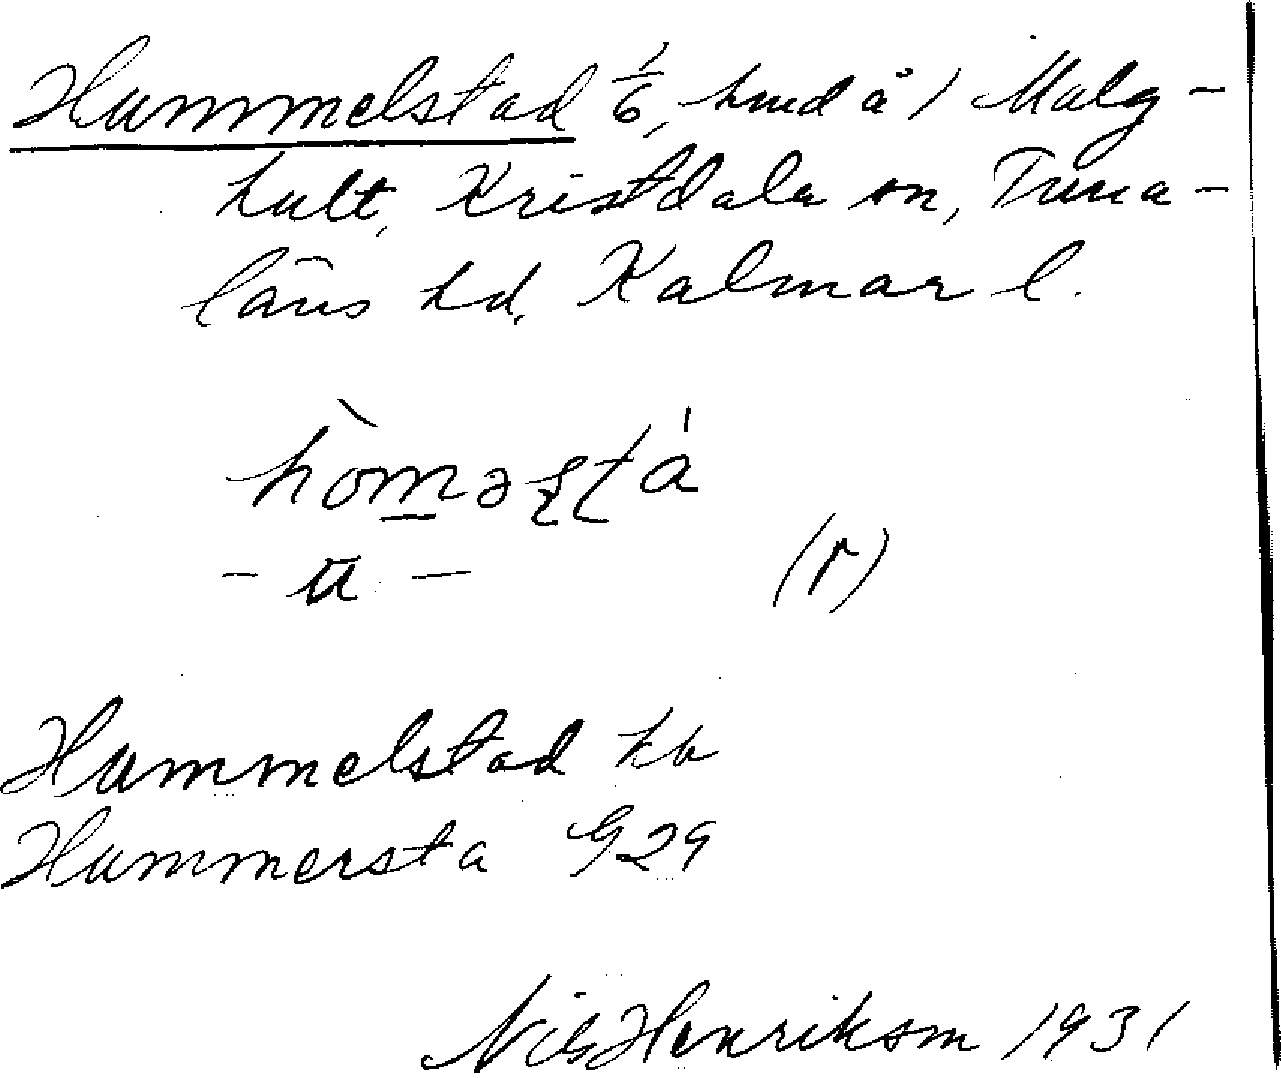 Hummelstad 1/6, hmd å 1 Malg-
hult, Kristdala sn, Tuna-
läns hd, Kalmar l.
hòməʂʈá
- u - (r)
Hummelstad kb
Hummersta G29
Nils Henrikson 1931